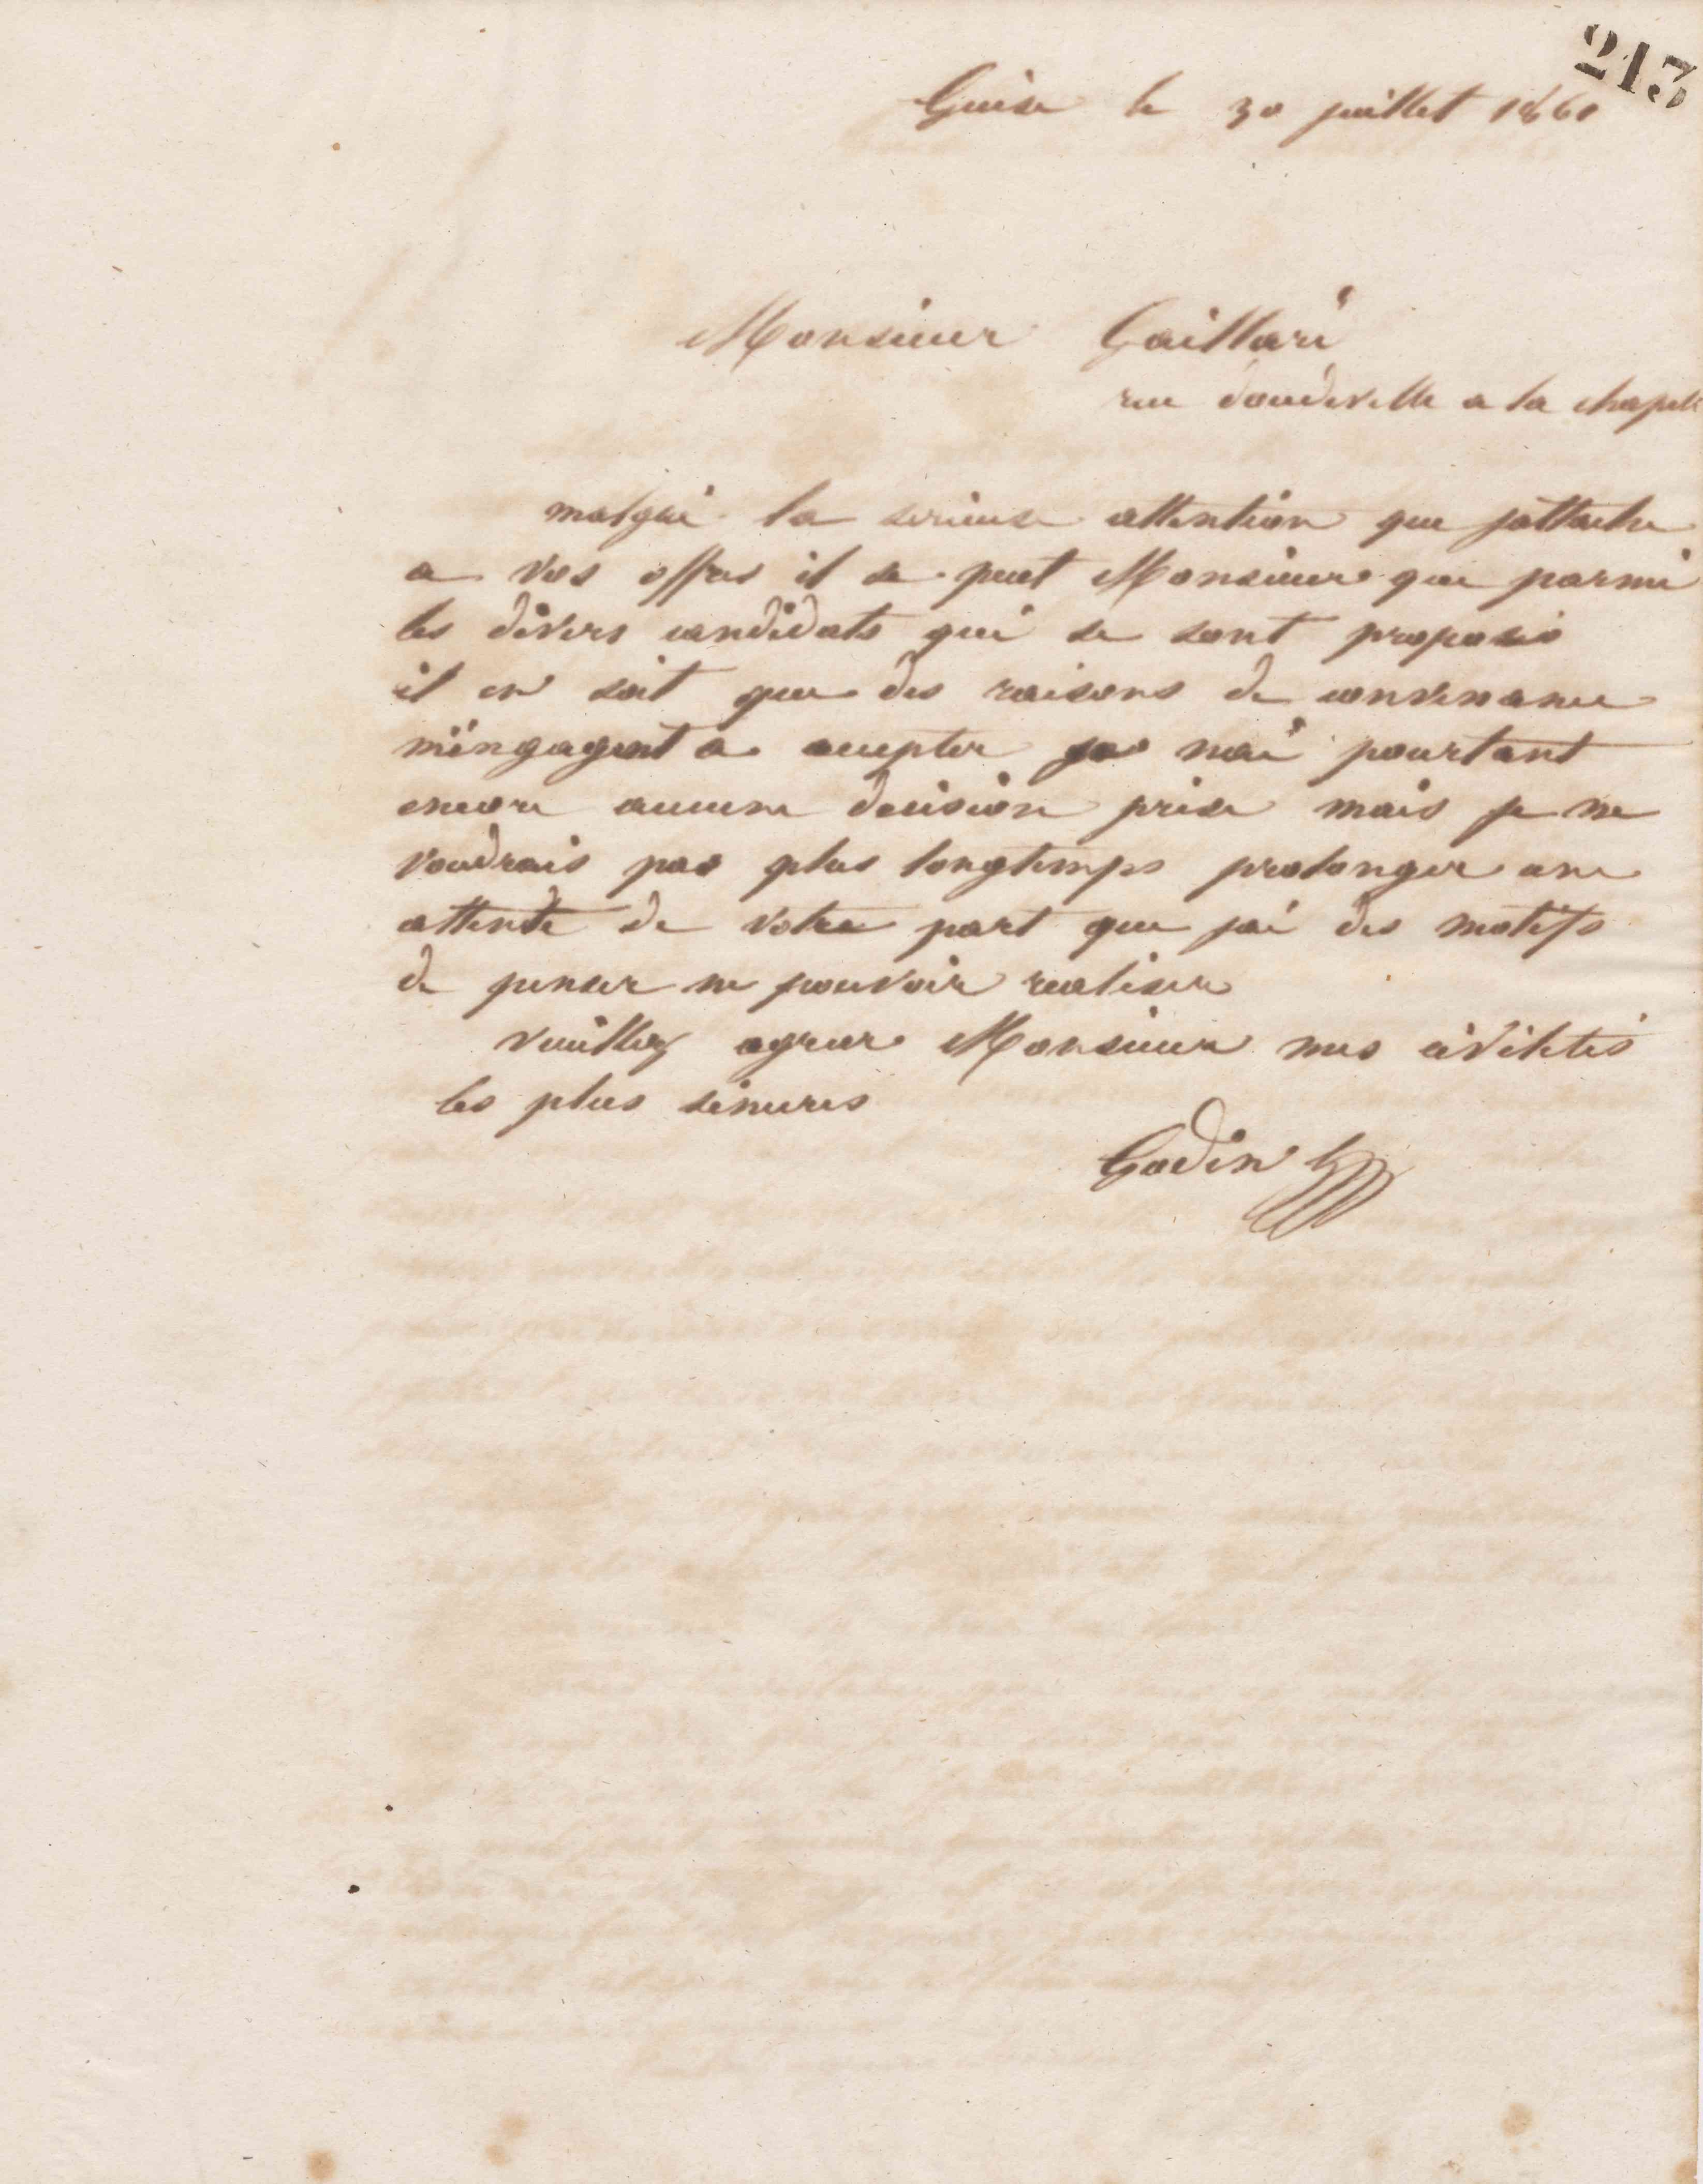 213
Guise le 30 juillet 1860
Monsieur Gaillard
rue doudeville a la chapelle
malgré la serieuse attention que jattache
a vos offres il se peut Monsieur que parmi
les divers candidats qui se sont proposés
il en soit que des raisons de convenance
m'engagent a accepter je nai pourtant
encore aucune decision prise mais je ne
voudrais pas plus longtemps prolonger une
attente de votre part que jai des motifs
de penser ne pouvoir realiser
veuillez agreer Monsieur mes civilités
les plus sinceres
Godin